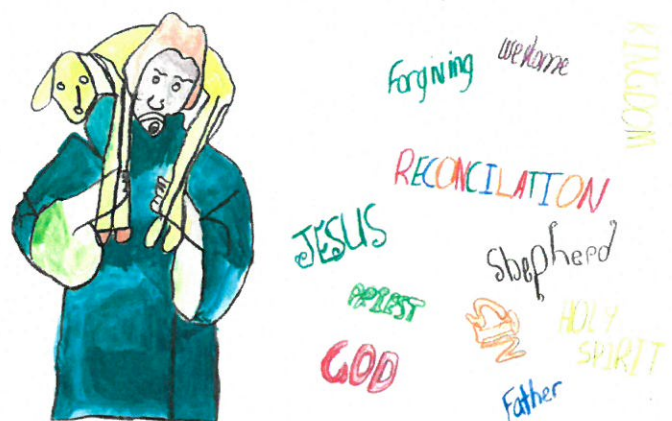 Forgiving
welcome
KINGDOM
RECONCILATION
JESUS
shepherd
PRIEST
HOLY
SPIRIT
GOD
Father